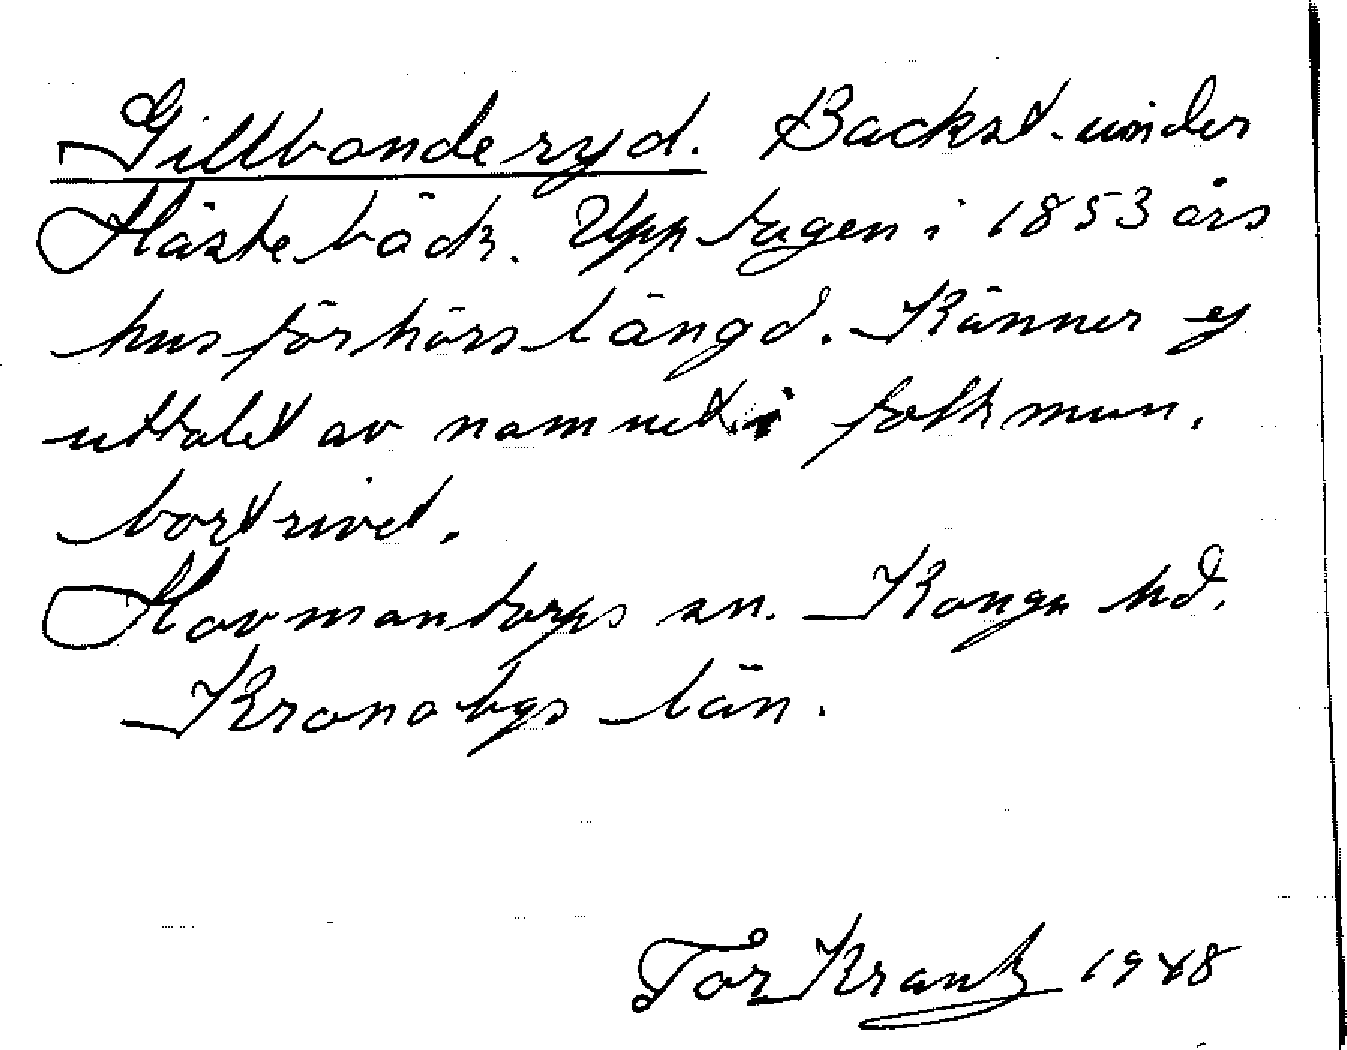 Gillbonderyd. Backst. under
Hästebäck. Upptagen i 1853 års
husförhörslängd. Känner ej
uttalet av namnet i folkmun.
bortrivet.
Hovmantorps sn. Konga hd.
Kronobgs län.
Tor Krantz 1948